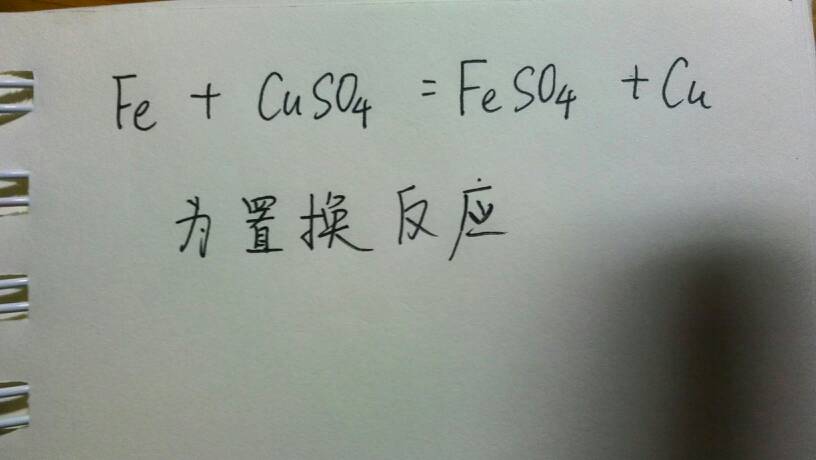 Fe + CuSO4 = FeSO4 + Cu
为置换反应